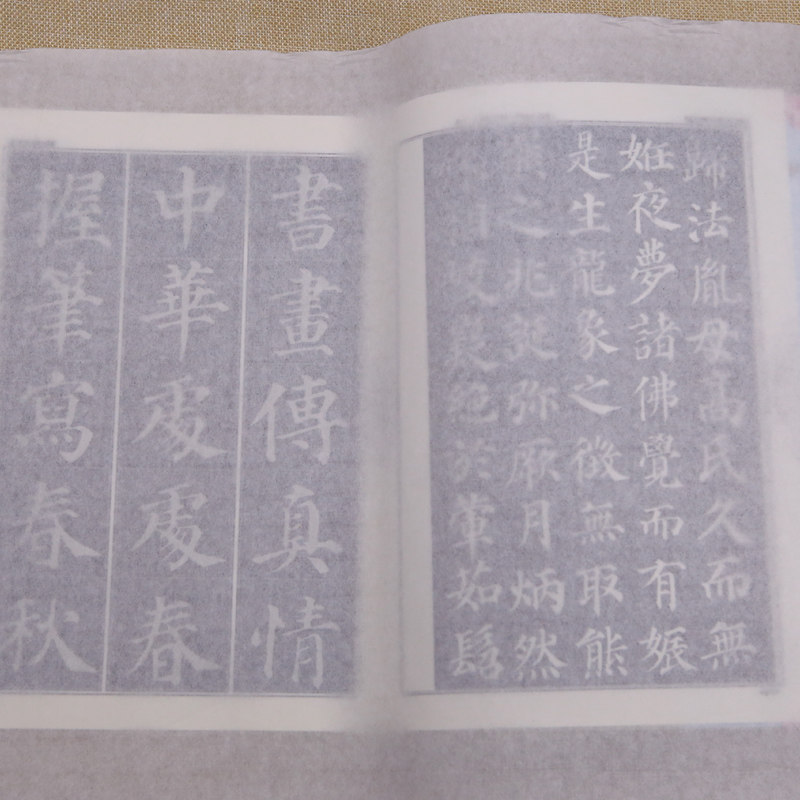 歸法胤母高氏久而無
姙夜夢諸佛覺而有娠
是生龍象之徵無取熊
羆之兆誕弥厥月炳然
殊相岐嶷絕於葷茹髫
書畫傳真情
中華處處春
握筆寫春秋